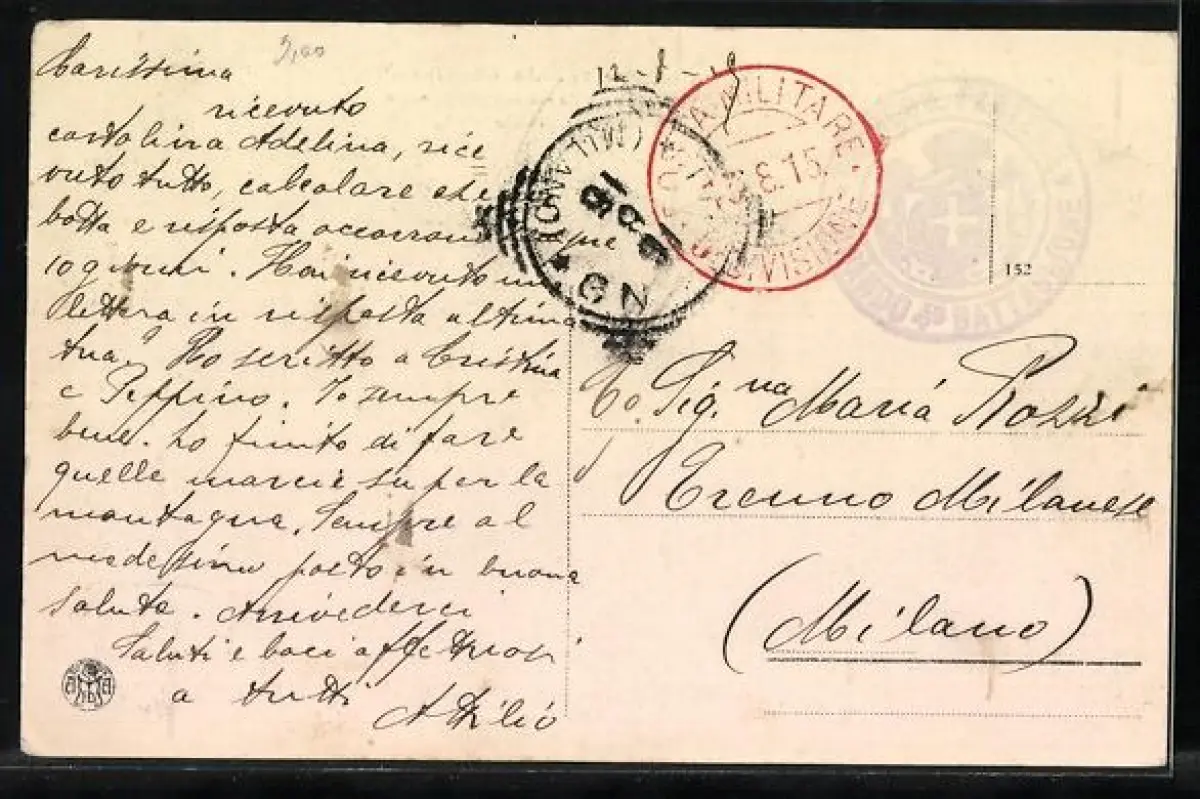 3,00
12-8-15
Carissima
ricevuto
cartolina Adelina, rice
vuto tutto, calcolare che
botta e risposta occorrono que
10 giorni. Hai ricevuto mia
lettera in risposta ultima
tua? Ho scritto a Cristina
e Peppino. Io sempre
bene. ho finito di fare
quelle marcie su per la
montagna. Sempre al
medesimo posto in buona
saluta. Arrivederci
Saluti e baci affettuosi
a tutti
Attilio
POSTA MILITARE
8.15
DIVISIONE
(MILANO)
15
BATTAGLIONE
152
Sig.na Maria Pozzi
Trenno Milanese
(Milano)